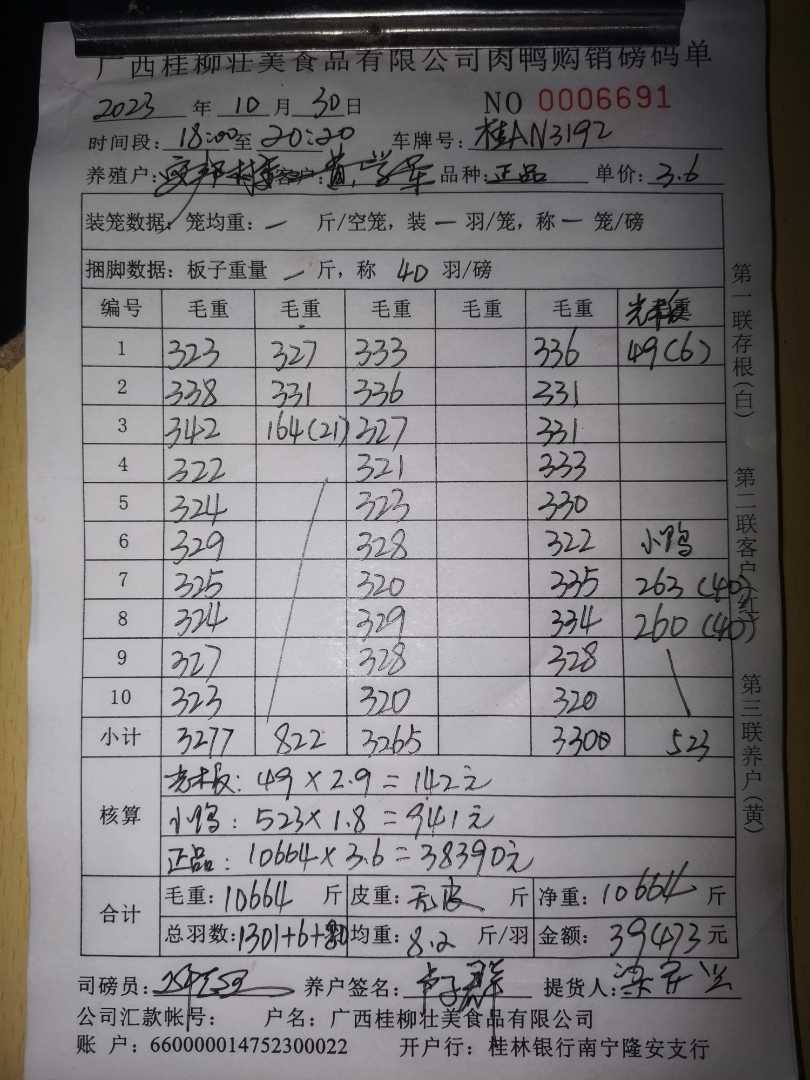 广西桂柳壮美食品有限公司肉鸭购销磅码单
2023 年 10 月 30 日 NO 0006691
时间段: 18:00 至 20:20 车牌号: 桂AN3192
养殖户: 客户: 黄 学军 品种: 正品 单价: 3.6
装笼数据: 笼均重: 一 斤/空笼, 装 一 羽/笼, 称 一 笼/磅
捆脚数据: 板子重量 一 斤, 称 40 羽/磅
编号 毛重 毛重 毛重 毛重 毛重 光木板
1 323 327 333 336 49(6)
2 338 331 336 331
3 342 164(21) 327 331
4 322 321 333
5 324 323 330
6 329 328 322 小鸭
7 325 320 335 263 (40)
8 324 329 334 260 (40)
9 327 328 328
10 323 320 320
小计 3277 822 3265 3300 523
核算
光木板: 49 × 2.9 = 142元
小鸭: 523 × 1.8 = 941元
正品: 10664 × 3.6 = 38390元
合计
毛重: 10664 斤 皮重: 无皮 斤 净重: 10664 斤
总羽数: 1301+6+80 均重: 8.2 斤/羽 金额: 39473 元
司磅员: 养户签名: 提货人:
公司汇款帐号: 户名: 广西桂柳壮美食品有限公司
账 户: 660000014752300022 开户行: 桂林银行南宁隆安支行
第一联存根(白)
第二联客户(红)
第三联养户(黄)